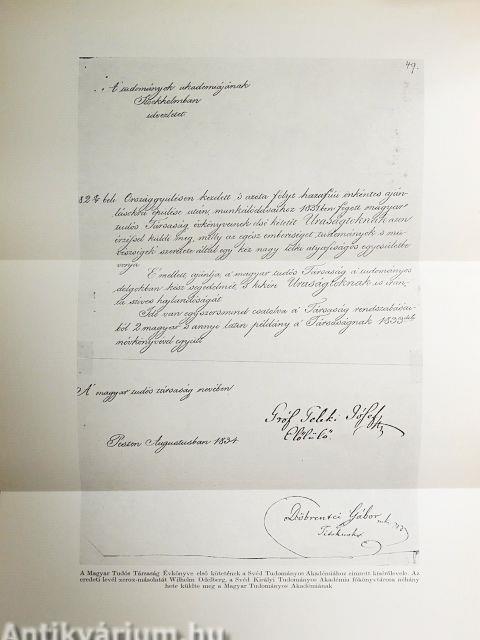 49.
A tudományok akadémiájának
Stockholmban
üdvezletet.
beli Országgyülésen kezdett 's azóta folyt hazafiui önkéntes aján-
lásokra épülése után, munkálódásaihoz 1831ben fogott magyar
tudós Társaság évkönyveinek első kötetét Uraságteknak azon
érzéssel küldi meg, melly az egész emberiséget, tudományok 's mű-
vészségek szeretete által egy kéz nagy lelkü atyafiságos egyesületbe
vonja.
E mellett, ajánlja a magyar tudós Társaság a tudományos
dolgokban kész segedelmét, 's kéri Uraságteknak is irán-
ta szives hajlandóságát.
Ide van egyszersmind csatolva a' Társaság rendszabásai-
ból 2 magyar 's annyi latin példány a' Társaságnak 1833
névkönyvével együtt.
A' magyar tudós társaság nevében
Pesten Augustusban 1834.
Gróf Teleki József
Előlülő
Döbrentei Gábor
Titoknok
A Magyar Tudós Társaság Évkönyve első kötetének a Svéd Tudományos Akadémiához címzett kísérőlevele. Az
eredeti levél xerox-másolatát Wilhelm Odelberg, a Svéd Királyi Tudományos Akadémia főkönyvtárosa néhány
hete küldte meg a Magyar Tudományos Akadémiának
Antikvárium.hu